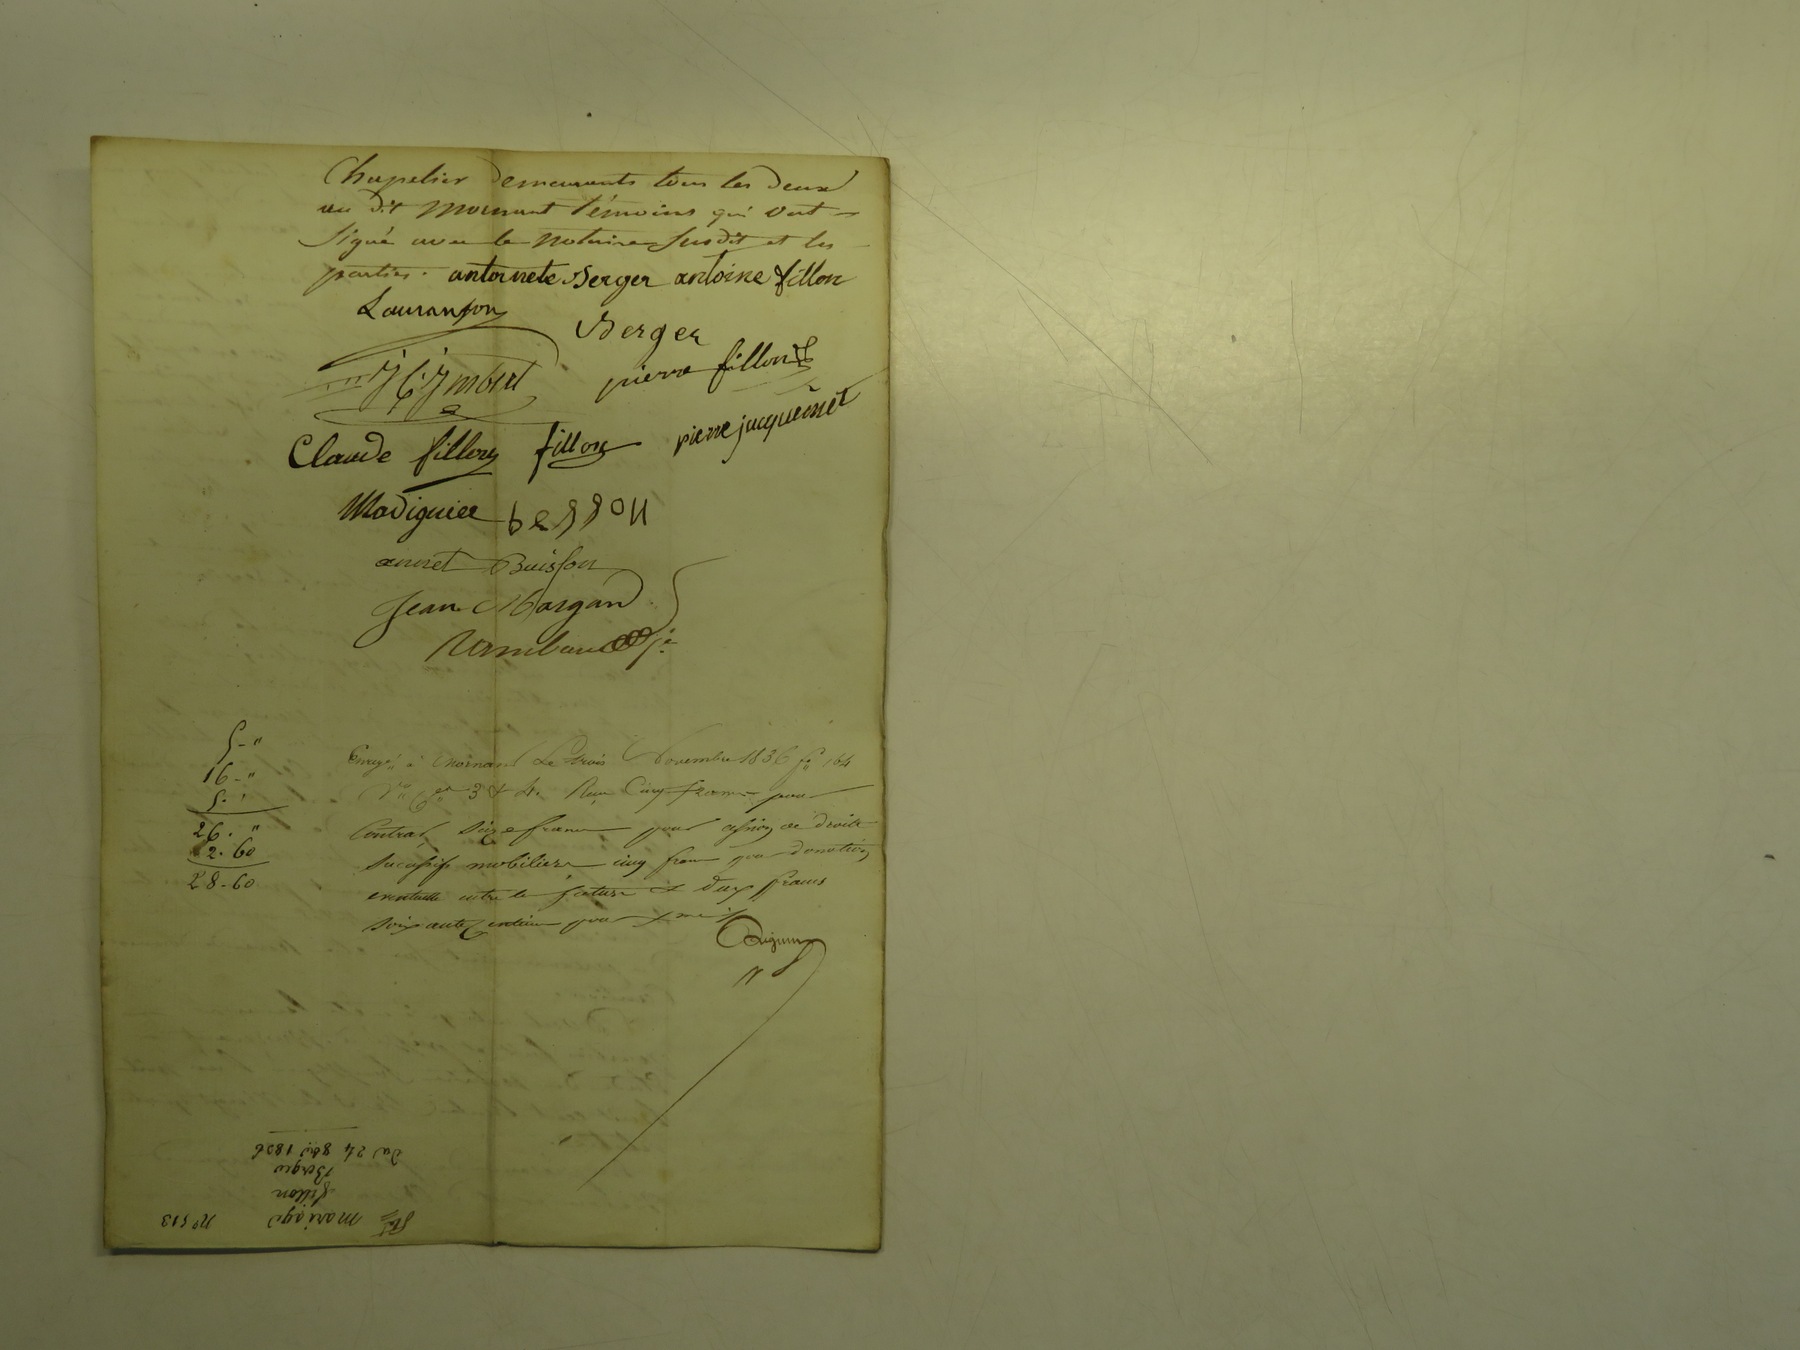 Chapelier demeurants tous les deux
au dit Mornant témoins qui ont
signé avec le notaire susdit et les
parties. antoinete Berger antoine fillon
Lauranson
Berger
Imbert pierre fillon
Claude fillon fillon pierre jacquemet
Madiguier
annet Buisson
Jean Margand
Rambaud
5 - "
16 - "
5 - "
26 . "
2. 60
28 - 60
Enregé à Mornant Le trois Novembre 1836 fo 164
Vo Ces 3 & 4. Reçu Cinq francs pour
Contrat, Seize francs pour cession de droits
successifs mobiliers, cinq francs pour donation
eventuelle entre les futurs et deux francs
soixante centimes pour
No 513
mariage
fillon
Berger
Du 24 8bre 1836